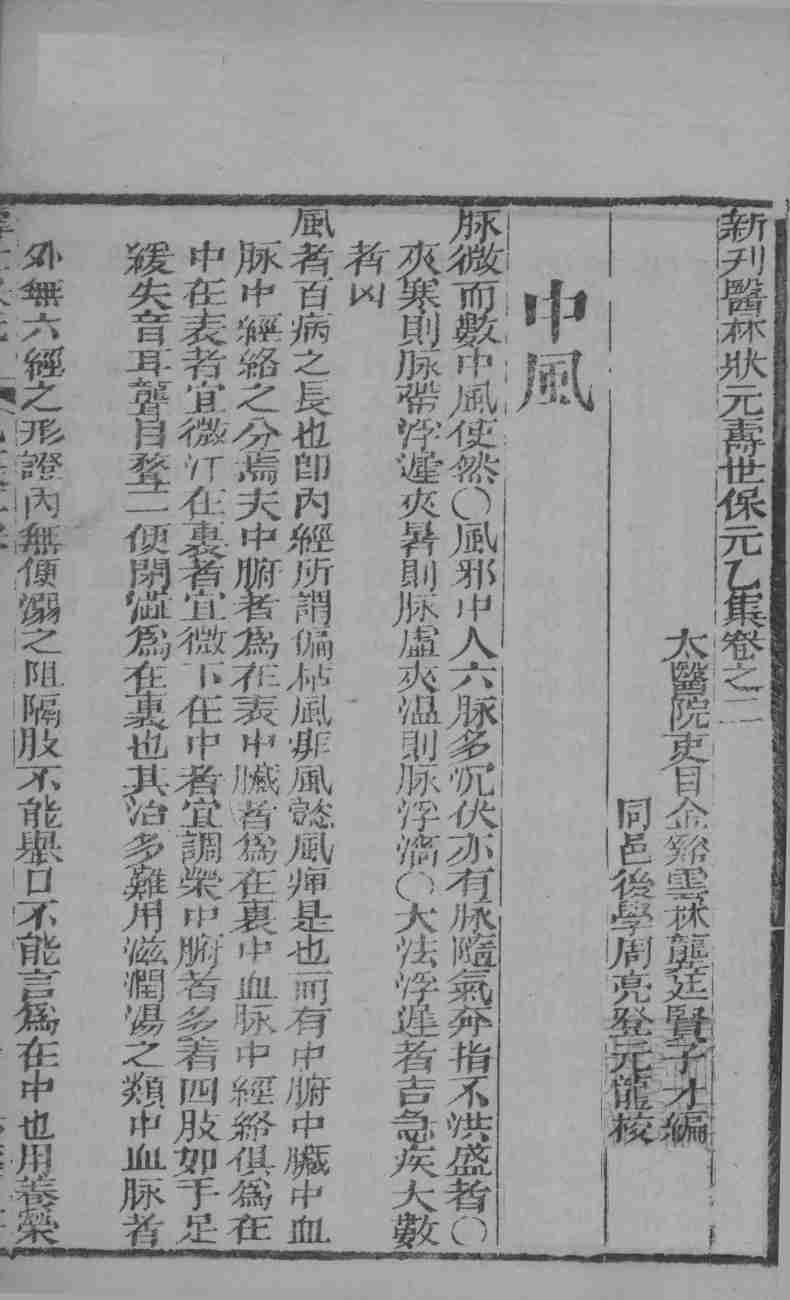 新刋醫林狀元壽世保元乙集卷之二
太醫院吏目金谿雲林龔廷賢子才編
同邑後學周亮登元龍校
中風
脉微而數中風使然○風邪中人六脉多沉伏亦有脉隨氣奔指下洪盛者○
夾寒則脉帶浮遲夾暑則脉虛夾濕則脉浮濇○大法浮遲者吉急疾大數
者凶
風者百病之長也即內經所謂偏枯風痱風懿風痹是也而有中腑中臟中血
脉中經絡之分焉夫中腑者爲在表中臟者爲在裏中血脉中經絡俱爲在
中在表者宜微汗在裏者宜微下在中者宜調榮中腑者多着四肢如手足
緩失音耳聾目瞀二便閉澁爲在裏也其治多難用滋潤湯之類中血脉者
外無六經之形證內無便溺之阻隔肢不能舉口不能言爲在中也用養榮